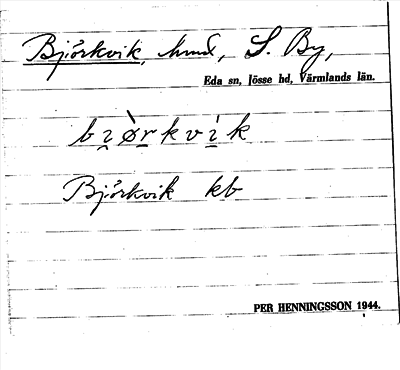 Björkvik, hmd, S. By,
Eda sn, Jösse hd, Värmlands län.
bi̯ø̀rkvìk
Björkvik kb
PER HENNINGSSON 1944.